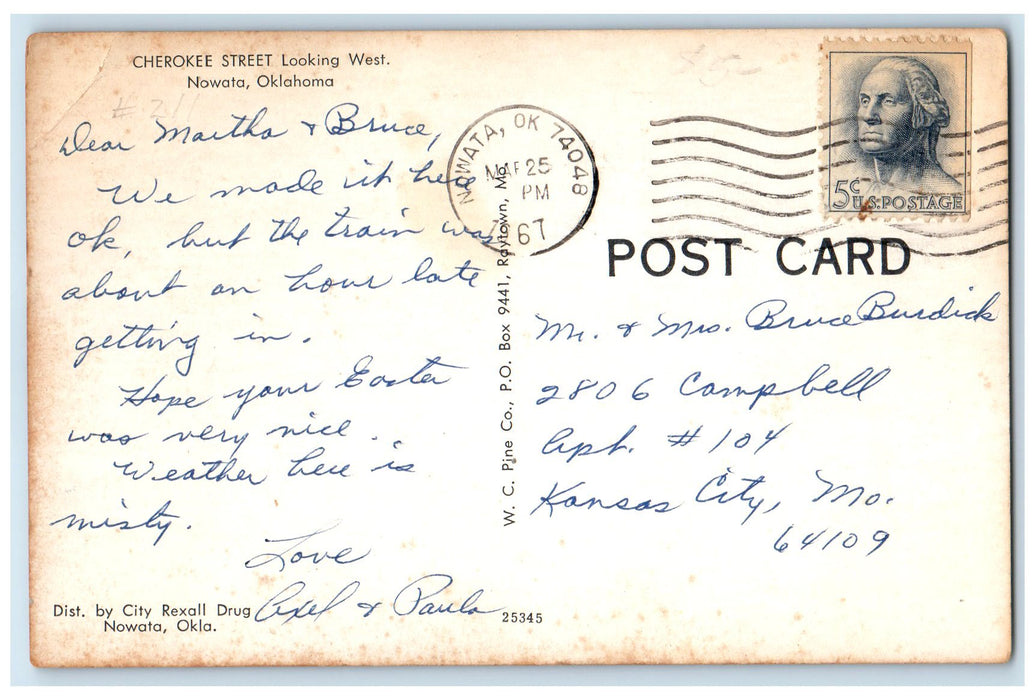 CHEROKEE STREET Looking West.
Nowata, Oklahoma
# 211
Dear Martha & Bruce,
We made it here
ok, but the train was
about an hour late
getting in.
Hope your Easter
was very nice.
Weather here is
misty.
Love
Axel & Paula
Dist. by City Rexall Drug
Nowata, Okla.
W. C. Pine Co., P.O. Box 9441, Raytown, Mo.
25345
NOWATA, OK 74048
MAR 25
PM
67
5c
U.S. POSTAGE
POST CARD
Mr. & Mrs. Bruce Burdick
2806 Campbell
Apt. # 104
Kansas City, Mo.
64109